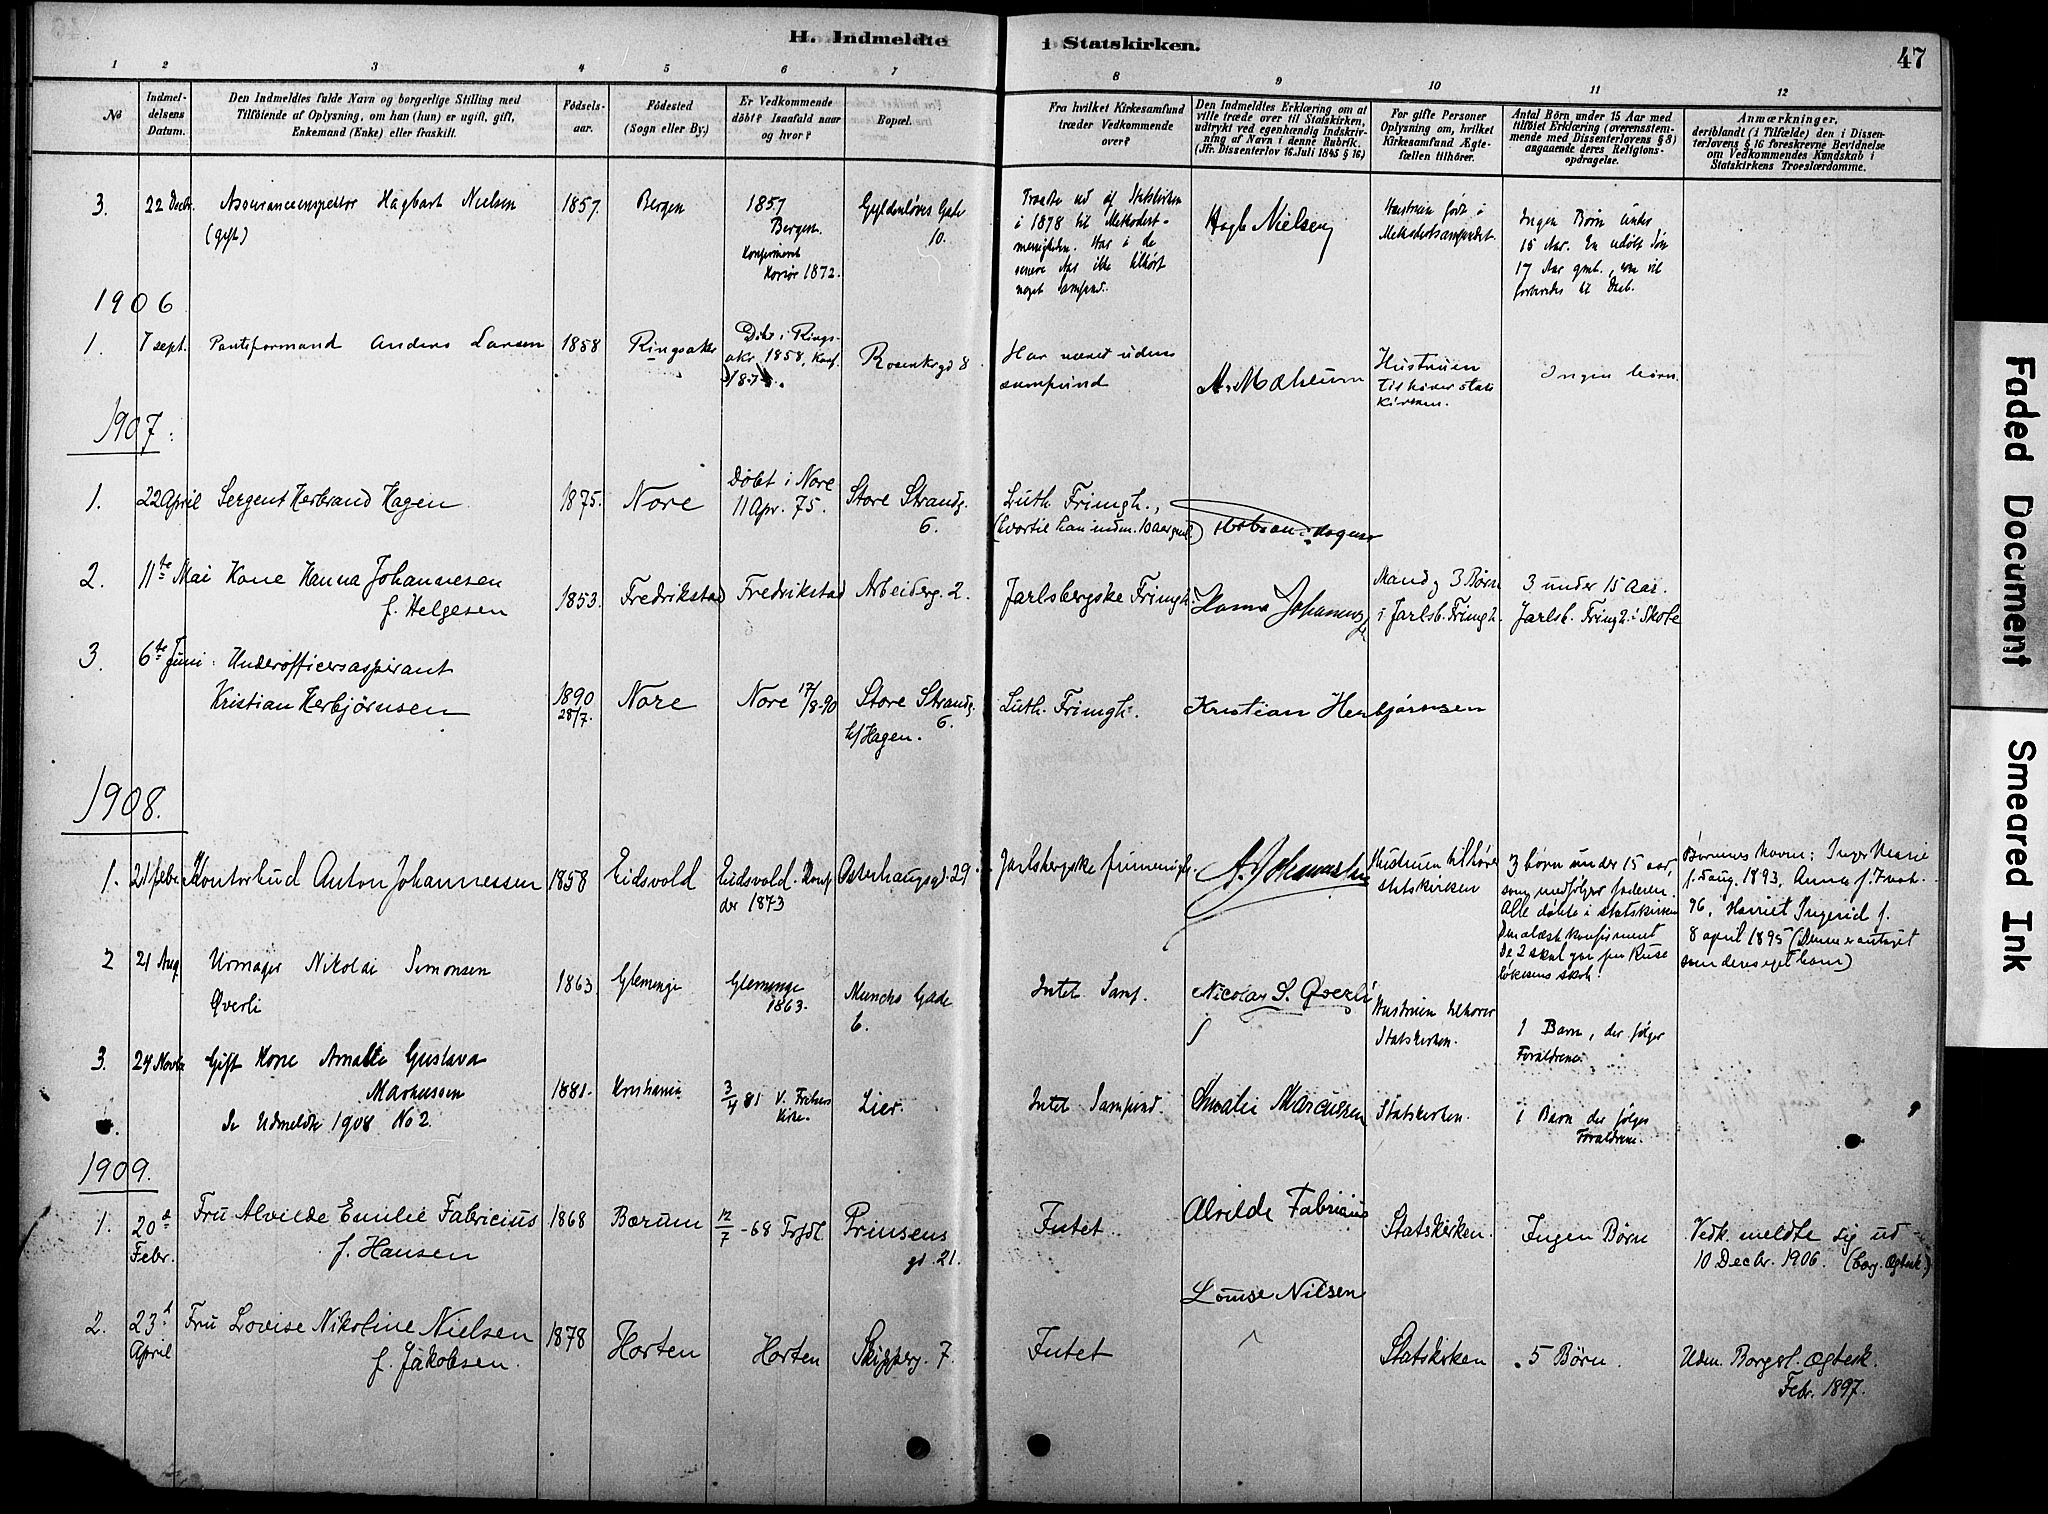 H. Indmeldte i Statskirken.
47
1 2 3 4 5 6 7 8 9 10 11 12
No
Indmel-
delsens
Datum.
Den Indmeldtes fulde Navn og borgerlige Stilling med
Tilföiende af Oplysning, om han (hun) er ugift, gift,
Enkemand (Enke) eller fraskilt.
Födsels-
aar.
Födested
(Sogn eller By.)
Er Vedkommende
döbt? Isaafald naar
og hvor?
Bopæl.
Fra hvilket Kirkesamfund
træder Vedkommende
over?
Den Indmeldtes Erklæring om at
ville træde over til Statskirken,
udtrykt ved egenhændig Indskriv-
ning af Navn i denne Rubrik.
(Jfr. Dissenterlov 16. Juli 1845 § 16)
For gifte Personer
Oplysning om, hvilket
Kirkesamfund Ægte-
fællen tilhörer.
Antal Börn under 15 Aar med
tilföiet Erklæring (overensstem-
mende med Dissenterlovens § 8)
angaaende deres Religions-
opdragelse.
Anmærkninger,
deriblandt (i Tilfælde) den i Dissen-
terlovens § 16 foreskrevne Bevidnelse
om Vedkommendes Kundskab i
Statskirkens Troeslærdomme.
3. 22 Decbr. Assuranceinspektør Hagbart Nielsen
(gift)
1857.
Bergen
1857
Bergen.
Konfirmeret
1872.
Gyldenløves Gade
10.
Traadte ud af Statskirken
i 1878 til Methodist-
menigheden. Har i de
senere Aar ikke tilhørt
noget Samfund.
Hagb Nielsen
Hustruen født i
Methodistsamfundet.
Ingen Børn under
15 Aar. En udøbt Søn
17 Aar gml., som vil
forberedes til Daab.
1906
1. 7 sept. Anders Larsen
1858
Ringsaker
Døbt i Rings-
aker 1858, Konf.
Rosenkrgd 8
Har været uden
samfund
Hustruen
tilhører stats
kirken.
Ingen børn.
1907.
1. 22 April Sergent Herbrand Hagen
1875.
Nore
Døbt i Nore
11 Apr. 75.
Store Strandg.
6.
Luth. Frimgh.,
(hvortil han indm. 10 aar gml.)
2. 11te Mai Kone Hanna Johannesen
f. Helgesen
1853.
Fredrikstad
Fredrikstad
Arbeiderg. 2.
Jarlsbergske Frimgh.
Hanna Johannesen
Mand og 3 Børn
i Jarlsb. Frimgh.
3 under 15 Aar.
Jarlsb. Frimgh. i Skole
3. 6te Juni Underofficersaspirant
Kristian Herbjørnsen
1890
28/7.
Nore
Nore 17/8-90
Store Strandg.
6.
h/Hagen.
Luth. Frimgh.
Kristian Herbjørnsen
1908.
1. 21 febr. Kontorbud Anton Johannessen
1858
Eidsvold
Eidsvold. Konf
der 1873
Osterhausgd. 29
Jarlsbergske frimenigh.
A. Johannessen
Hustruen tilhører
statskirken
3 børn under 15 aar,
som medfølger faderen.
Alle døbte i statskirken
Den ældste konfirmeret
De 2 skal gaa paa Ruse
løkkens skole.
Børnenes Navn: Inger Marie
f. 5 aug. 1893, Anna f.
96, Harriet Ingerid f.
8 april 1895 (Denne er antaget
som deres eget barn)
2 21 Aug Urmager Nikolai Simonsen
Øverli
1863.
Glemminge
Glemminge
1863.
Munchs Gade
6.
Intet Samf.
Nicolay S. Øverli
Hustruen tilhører
Statskirken.
1 Barn, der følger
Forældrene.
3. 24 Novbr Gift Kone Amalie Gustava
Markussen
Se Udmeldte 1908 No 2.
1881.
Kristiania
3/4 81 V. Frelsers
Kirke.
Lier.
Intet Samfund.
Amalie Marcussen
Statskirken.
1 Barn der følger
Forældrene.
1909.
1. 20d
Febr.
Fru Alvilde Emilie Fabricius
f. Hansen
1868
Bærum
12/7-68
Prinsens
gd. 21.
Intet
Alvilde Fabricius
Statskirken.
Ingen Børn
Vedk. meldte sig ud
10 Decbr. 1906. (borg. Ægtesk.)
2. 23d
April
Fru Lovise Nikoline Nielsen
f. Jakobsen.
1878
Horten
Horten
Skipperg. 7.
Intet
Louise Nilsen
Statskirken
5 Børn.
Udm. Borgerl. Ægtesk.
Febr. 1897.
Faded Document
Smeared Ink